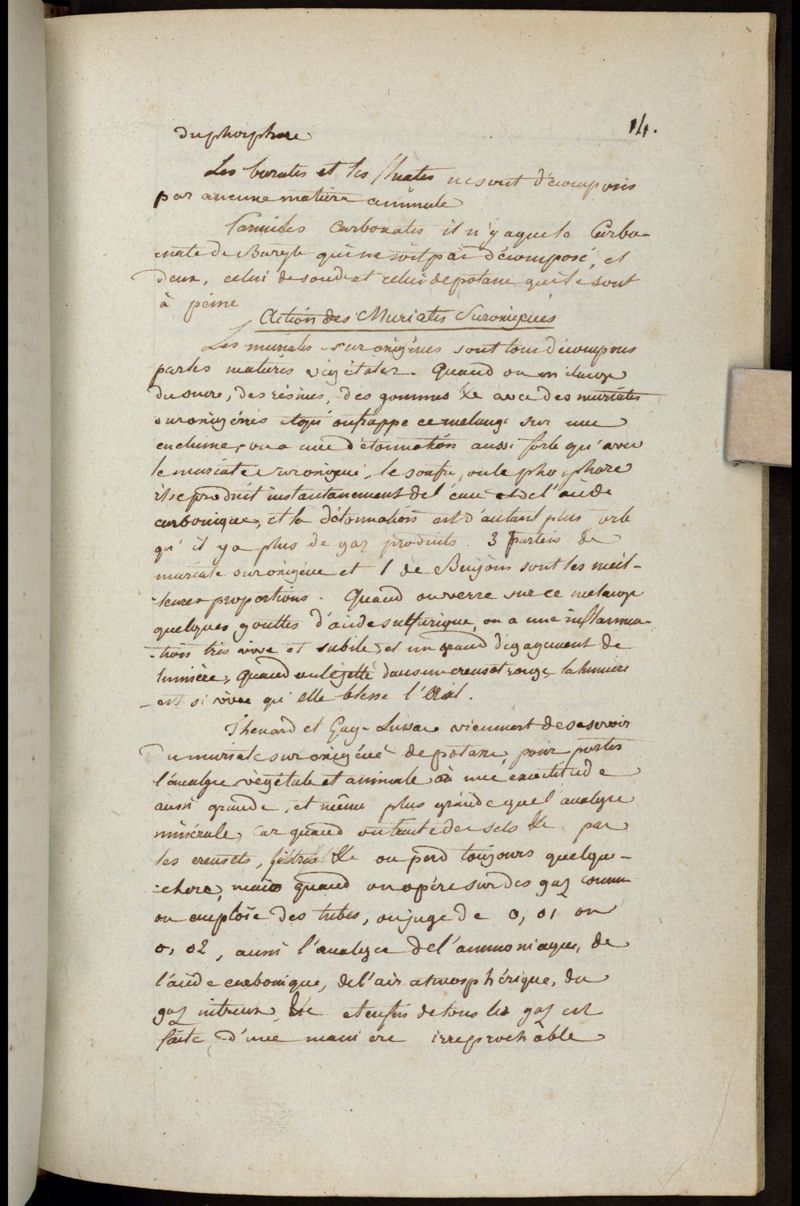 14.
du phosphore
Les borates et les fluates ne sont décomposés
par aucune matiere animale
Parmi les Carbonates il n'y a que le Carbo-
nate de Baryte qui ne soit pas décomposé, et
deux, celui de soude et celui de potasse qui le sont
à peine
Action des Muriates Suroxigénés
Les muriates suroxigénés sont tous décomposés
par les matieres végétales. Quand on mélange
du sucre, des résines, des gommes &c avec des muriates
suroxigénés et qu'on frappe ce mélange sur une
enclume, on a une détonnation aussi forte qu'avec
le muriate suroxigéné, le soufre, ou le phosphore
il se produit instantanement de l'eau et de l'acide
carbonique, et la détonnation est d'autant plus forte
qu'il y a plus de gaz produits. 3 parties de
muriate suroxigéné et 1 de Benjoin sont les meil-
leures proportions. Quand on verse sur ce mélange
quelques gouttes d'acide sulfurique, on a une inflamma-
tion très vive et subite, et un grand dégagement de
lumière, Quand on le jette dans un creuset rouge la lumiere
est si vive qu'elle blesse l'œil.
Thenard et Gay-Lussac viennent de se servir
du muriate suroxigéné de potasse, pour porter
l'analyse végétale et animale à une exactitude
aussi grande, et même plus grande que l'analyse
minérale, car quand on traite des sels &c par
les creusets, filtres &c on perd toujours quelque-
chose, mais quand on opére sur des gaz comme
on emploie des tubes, on juge de 0,01 ou
0,02, aussi l'analyse de l'ammoniaque, de
l'acide carbonique, de l'air atmosphérique, du
gaz nitreux, &c et enfin de tous les gaz est
faite d'une maniere irreprochâble